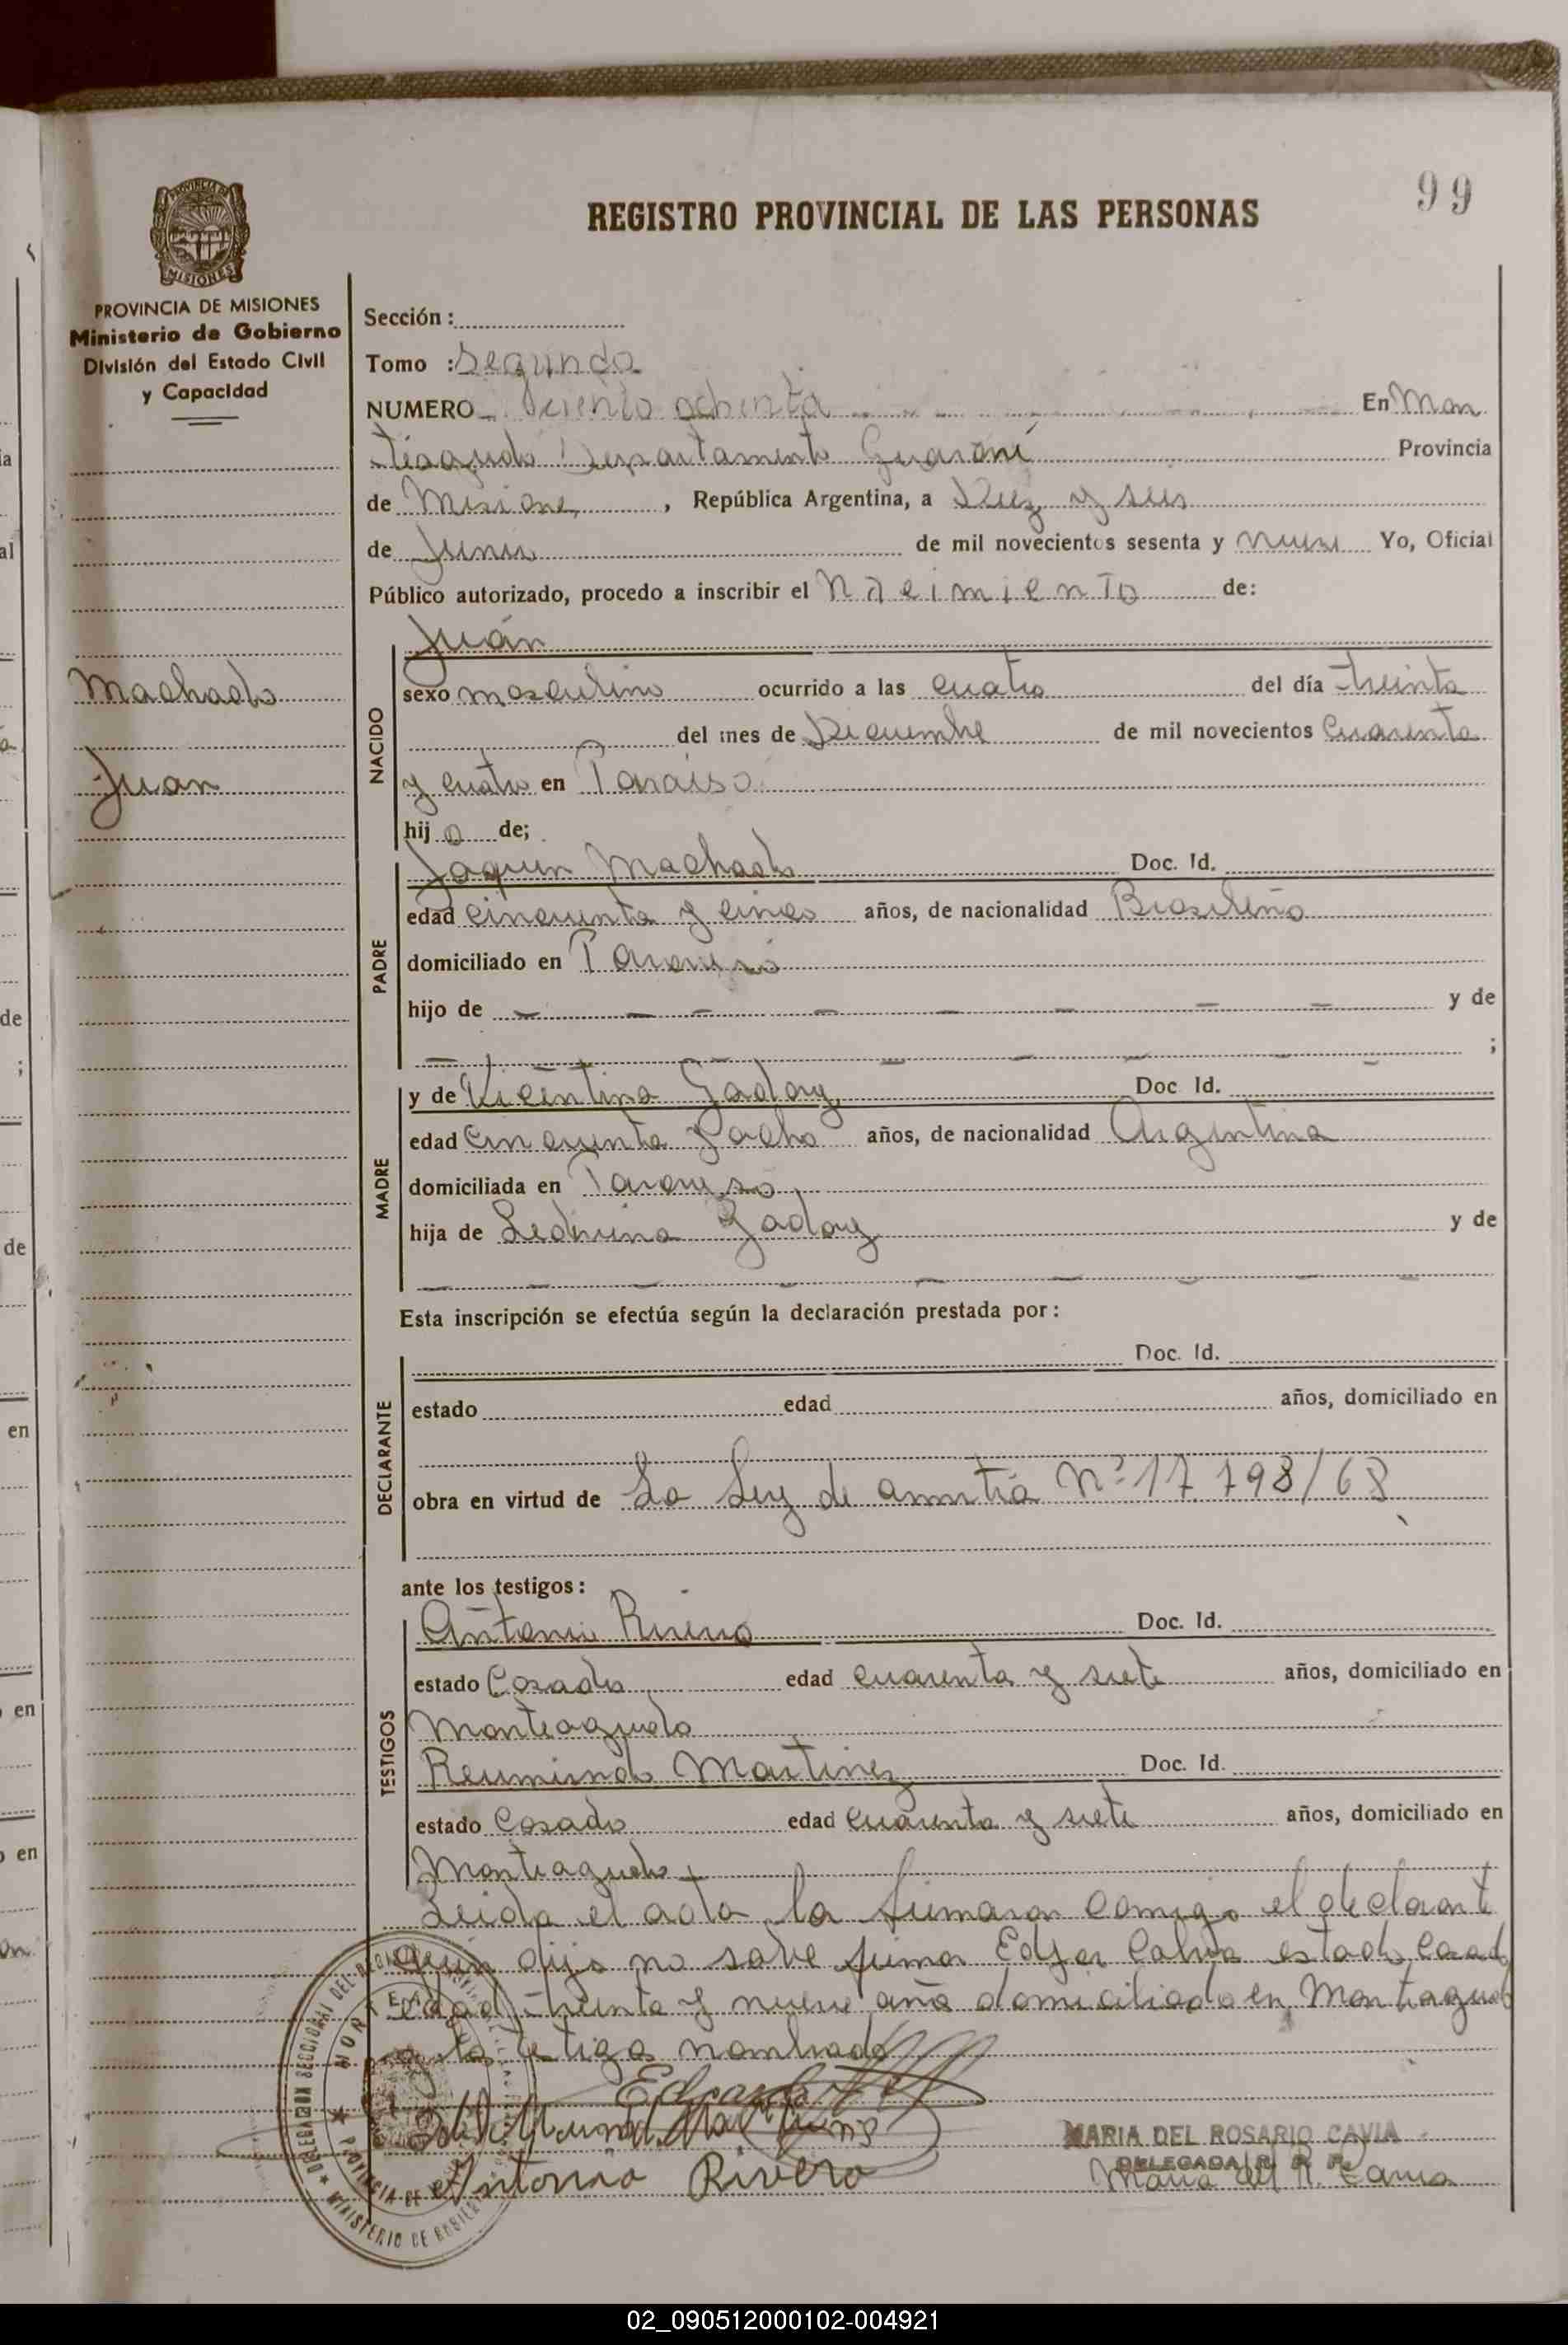 99
REGISTRO PROVINCIAL DE LAS PERSONAS
PROVINCIA DE MISIONES
Ministerio de Gobierno
División del Estado Civil
y Capacidad
Sección :
Tomo : Segundo
NUMERO ochenta En Mon
teagudo Departamento Guaraní Provincia
de Misiones, República Argentina, a Diez y seis
de Junio de mil novecientos sesenta y nueve Yo, Oficial
Público autorizado, procedo a inscribir el Nacimiento de:
Machado
Juan
NACIDO
Juán
sexo masculino ocurrido a las cuatro del día treinta
del mes de Diciembre de mil novecientos Cuarenta
y cuatro en Paraíso
hijo de;
PADRE
Joaquin Machado Doc. Id.
edad cincuenta y cinco años, de nacionalidad Brasileño
domiciliado en Paraiso
hijo de y de
;
MADRE
y de Vicentina Doc Id.
edad cincuenta y ocho años, de nacionalidad Argentina
domiciliada en Paraiso
hija de y de
Esta inscripción se efectúa según la declaración prestada por :
DECLARANTE
Doc. Id.
estado edad años, domiciliado en
obra en virtud de La Ley de Nº 17.798/68
ante los testigos :
TESTIGOS
Antonio Rivero Doc. Id.
estado Casado edad cuarenta y siete años, domiciliado en
Monteagudo
Martinez Doc. Id.
estado Casado edad cuarenta y siete años, domiciliado en
Monteagudo
Leida el acta la firmaron comigo el declarante
quien dijo no sabe firmar Edgar estado casado
edad treinta y nueve años domiciliado en Monteagudo
y los testigos nombrados
Antonio Rivero
MARIA DEL ROSARIO CAVIA
DELEGADA R. P. P.
Maria del R. Cavia
02_090512000102-004921